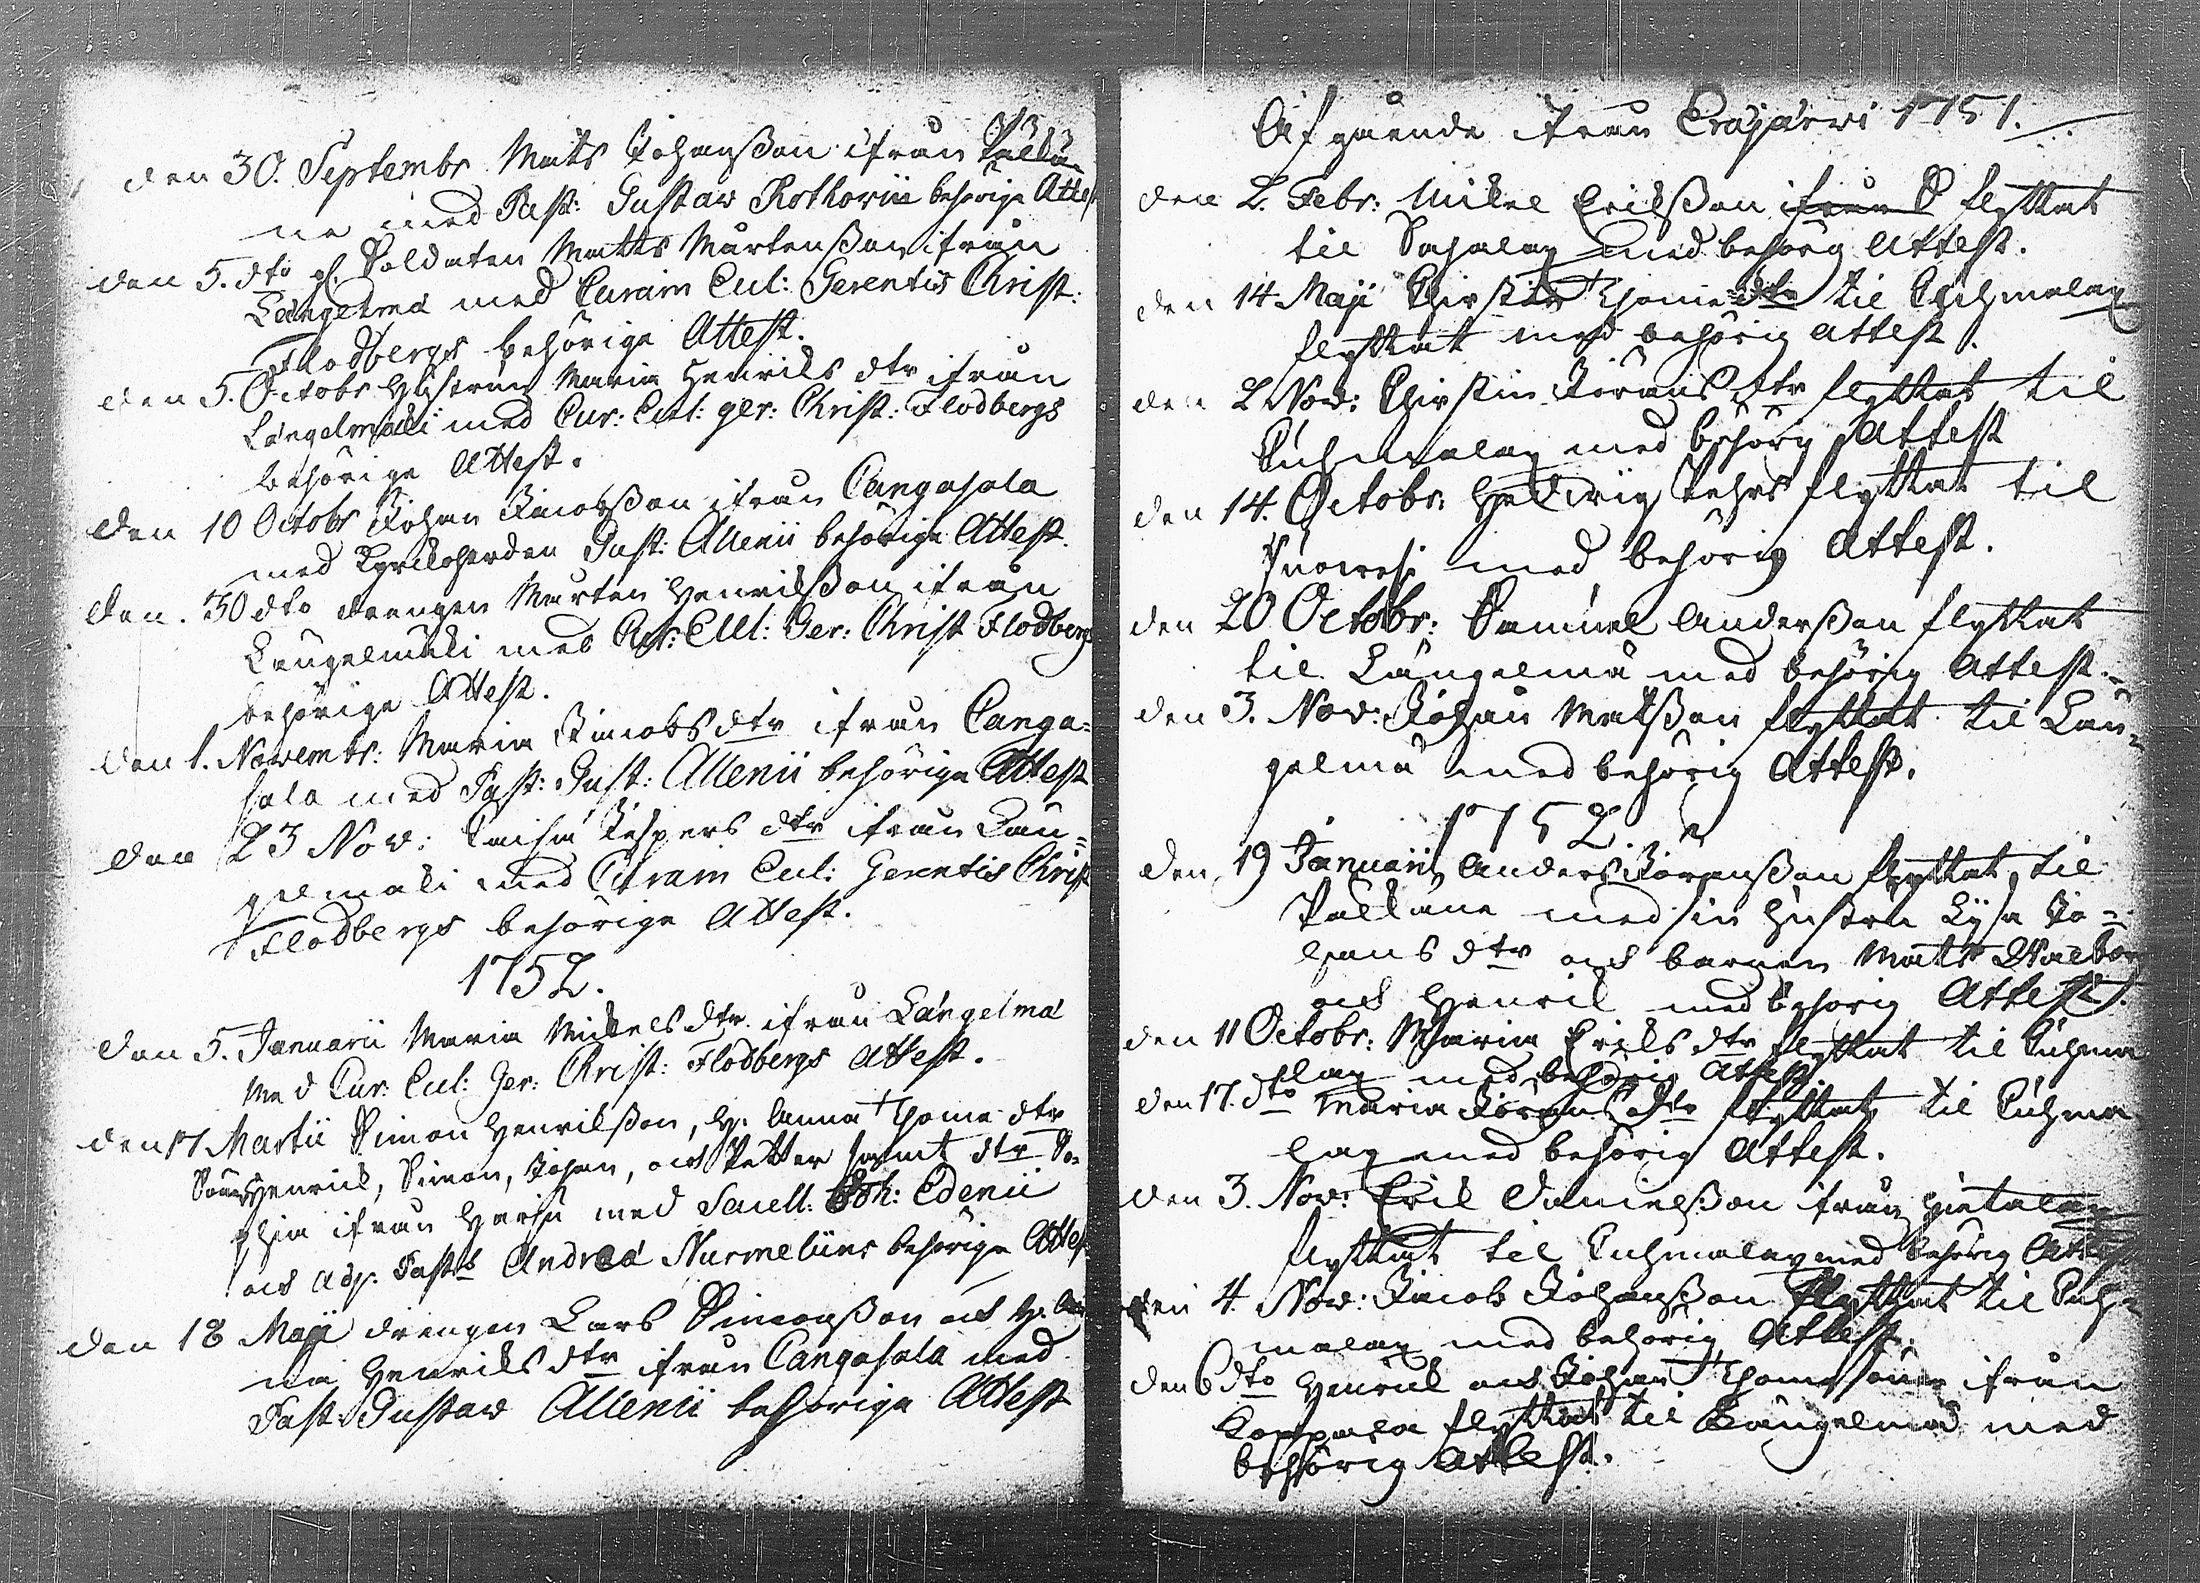 den 30. Septembr Mats Johanßon ifrån Pälkä-
ne med Past: Gustaw Rothovii behörige Attest
den 5. dto gl. Soldaten Matts Mårtenßon ifrån
Längelmä med Curam Eccl: Gerentis Christ:
Flodbergs behörige Attest.
den 5. Octobr Hustrun Maria Henriks dtr ifrån
Längelmäki med Cur: Eccl: ger: Christ: Flodbergs
behörige Attest.
den 10 Octobr Johan Jacobßon ifrån Cangasala
med Kyrkoherden Gust: Allenii behörige Attest.
den. 30 dto drengen Mårten Henrikßon ifrån
Längelmäki med Cur: Eccl: Ger: Christ Flodbergs
behörige Attest.
den 1. Novembr: Maria Jacobs dtr ifrån Canga-
sala med Past: Gust: Allenii behörige Attest
den 23 Nov: Caisa Jespers dtr ifrån Län-
gelmäki med Curam Eccl: Gerentis Christ
Flodbergs behörige Attest.
1752.
den 5. Januarii Maria Mickels dtr. ifrån Längelmä
med Cur: Eccl: Ger: Christ: Flodbergs Attest.
den 17 Martii Simon Henrikßon, H. Anna Thome dtr
Söner Henrick, Simon, Johan, ock Petter samt dtr So-
phia ifrån med Sacell: Joh: Edenii
ock Adj. Past: Andreæ Nurmeliins behörige Attest
den 18 Maji drengen Lars Simonßon ock H. An
na Henriks dtr ifrån Cangasala med
Past: Gustaw Allenii behörige Attest
Afgående ifrån Eräjärwi 1751.
den 2. Febr: Mickel Erikßon ifrån S flyttat
til Sahalax med behörig Attest.
den 14 Maji Chirstin Thomedtr til Kuhmalax
flyttat med behörig attest.
den 2 Nov: Chirstin Jörans dtr flyttat til
Kuhmalax med behörig Attest
den 14. Octobr: Hedwig flyttat til
Suoniemi med behörig Attest.
den 20 Octobr: Samuel Anderßon flyttat
til Längelmä med behörig Attest.
den 3. Nov: Johan Matßon flyttat til Län-
gelmä med behörig Attest.
1752
den 19 Januarii Anders Jöranßon flyttat til
Pälkäne med sin hustru Lysa Jo-
hans dtr ock barnen Mats Walbor
ock Henrik med behörig Attest.
den 11 Octobr: Maria Eriks dtr flyttat til Kuhma
lax med behörig Attest
den 17. dto Maria Jörans dtr flyttat til Kuhma
lax med behörig Attest.
den 3. Nov: Erik Danielßon ifrån Hietalax
flyttat til Kuhmalax med behörig Attest
den 4. Nov: Jacob Johanßon flyttat til Kuh-
malax med behörig Attest.
den 6 dto Henrick ock Johan Thome söner ifrån
Koppala flyttat til Längelmä med
behörig Attest.